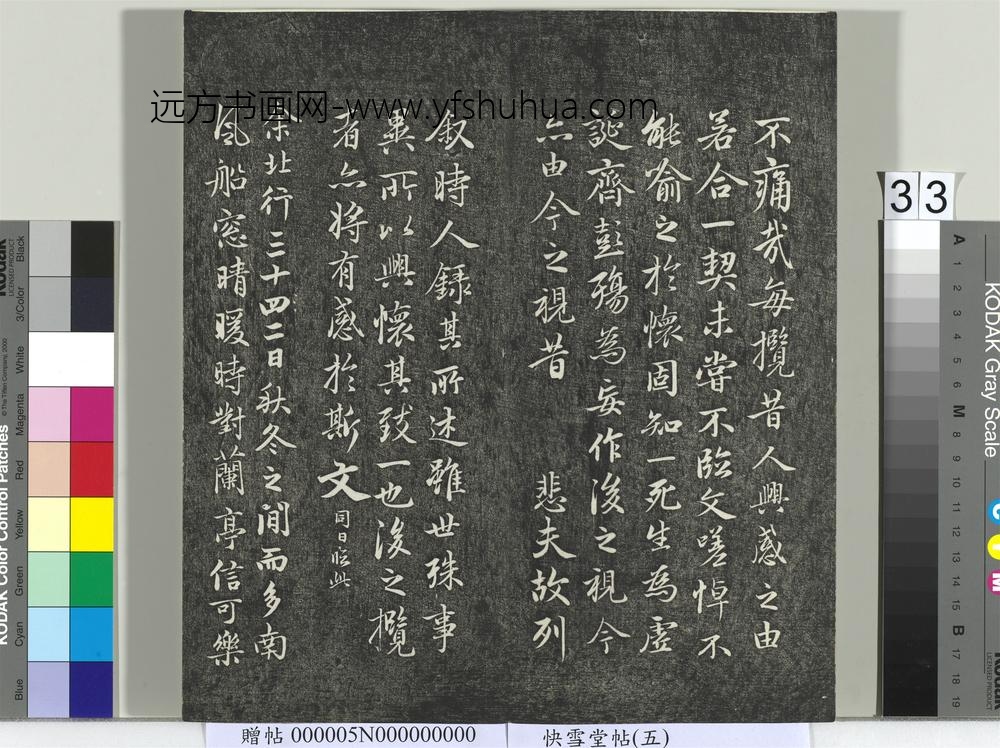 远方书画网-www.yfshuhua.com
不痛哉每攬昔人興感之由
若合一契未嘗不臨文嗟悼不
能喻之於懷固知一死生為虛
誕齊彭殤為妄作後之視今
亦由今之視昔 悲夫故列
叙時人錄其所述雖世殊事
異所以興懷其致一也後之攬
者亦將有感於斯文 同日
余北行三十四二日秋冬之間而多南
風船窓晴暖時對蘭亭信可樂
33
贈帖 000005N000000000
快雪堂帖(五)
KODAK Color Control Patches
Blue
Cyan
Green
Yellow
Red
Magenta
White
3/Color
Black
KODAK Gray Scale
A 1 2 3 4 5 6 M 8 9 10 11 12 13 14 15 B 17 18 19
C
Y
M